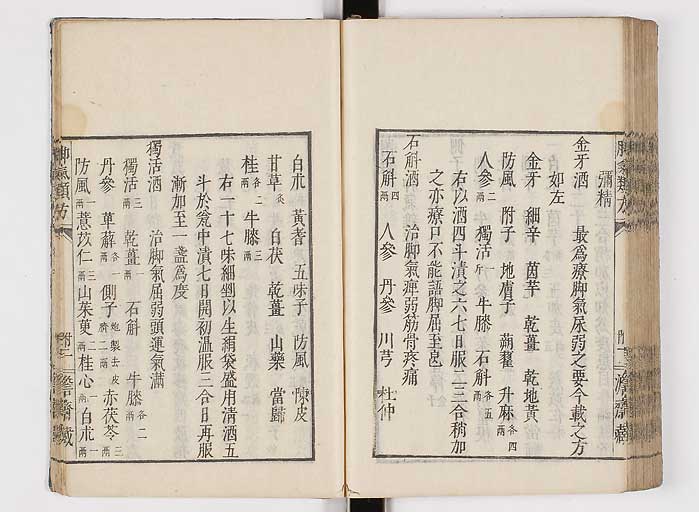 彌精
金牙酒　最爲療脚氣尿弱之要今載之方
如左
金牙　細辛　茵芋　乾薑　乾地黃
防風　附子　地膚子　蒴藋　升麻各四兩
人參二兩　獨活一斤　牛膝　石斛各五兩
右以酒四斗漬之六七日服二三合稍加
之亦療口不能語脚屈至邑
石斛酒　治脚氣痺弱筋骨疼痛
石斛四兩　人參　丹參　川芎　杜仲
白朮　黃耆　五味子　防風　陳皮
甘草炙　白茯　乾薑　山藥　當歸
桂各二兩　牛膝三兩
右一十七味細剉以生絹袋盛用清酒五
斗於瓮中漬七日開初溫服二合日再服
漸加至一盞爲度
獨活酒　治脚氣屈弱頭運氣滿
獨活三兩　乾薑　石斛　牛膝各二兩
丹參　萆薢各一兩　側子炮製去皮臍二兩　赤茯苓三兩
防風一兩　薏苡仁三兩　山茱萸二兩　桂心一兩　白朮一兩
脚氣類方
附一
澹齋藏